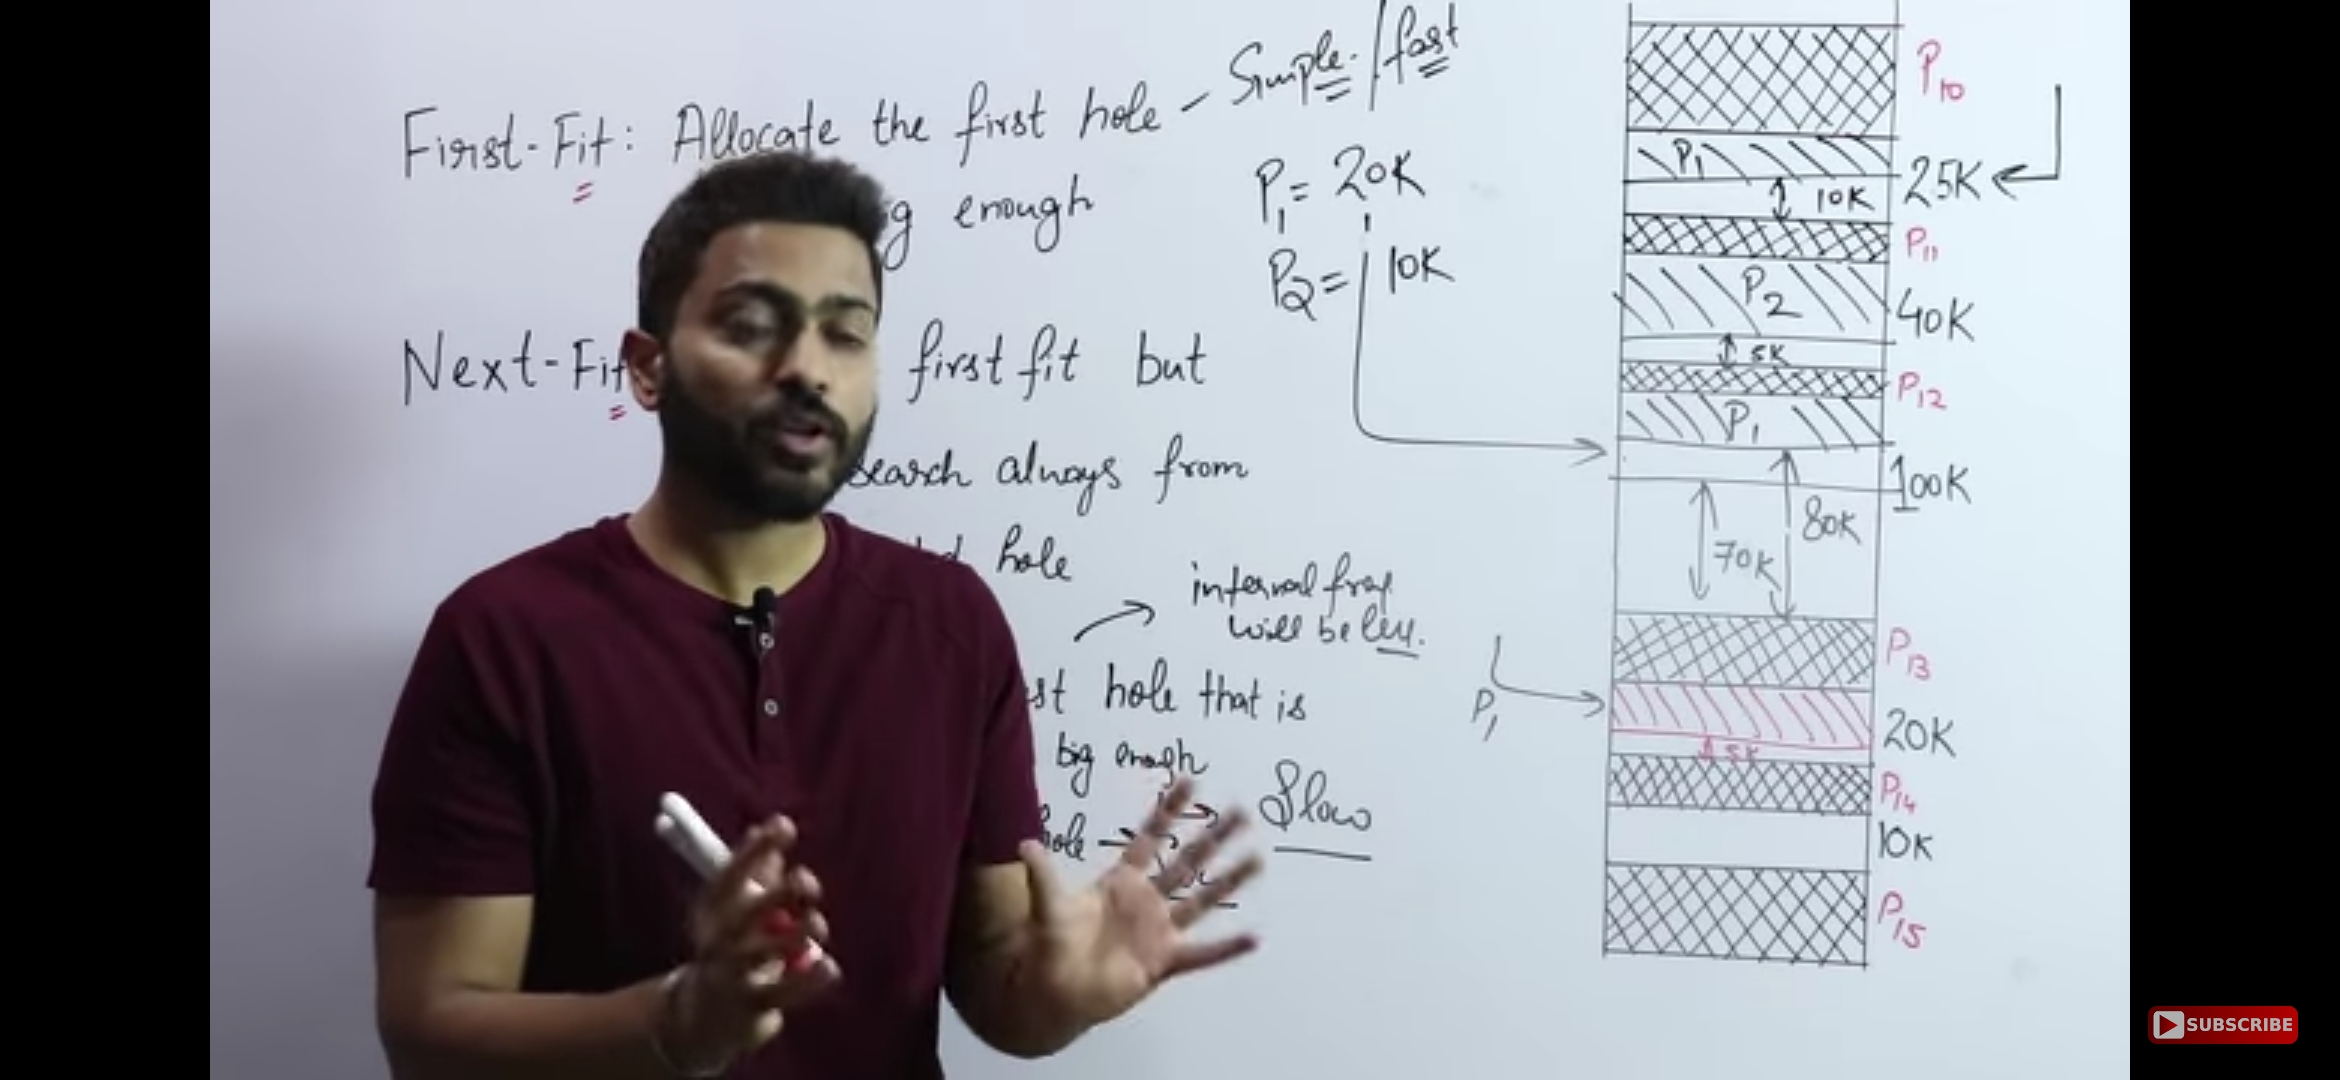 First-Fit: Allocate the first hole - Simple / fast
enough
P1 = 20K
P2 = 10K
Next-Fit first fit but
search always from
hole
internal frag.
will be less.
hole that is
big enough
Slow
hole
P1
P10
P1
25K
10K
P11
P2
40K
5K
P12
P1
100K
80K
70K
P13
20K
5K
P14
10K
P15
SUBSCRIBE